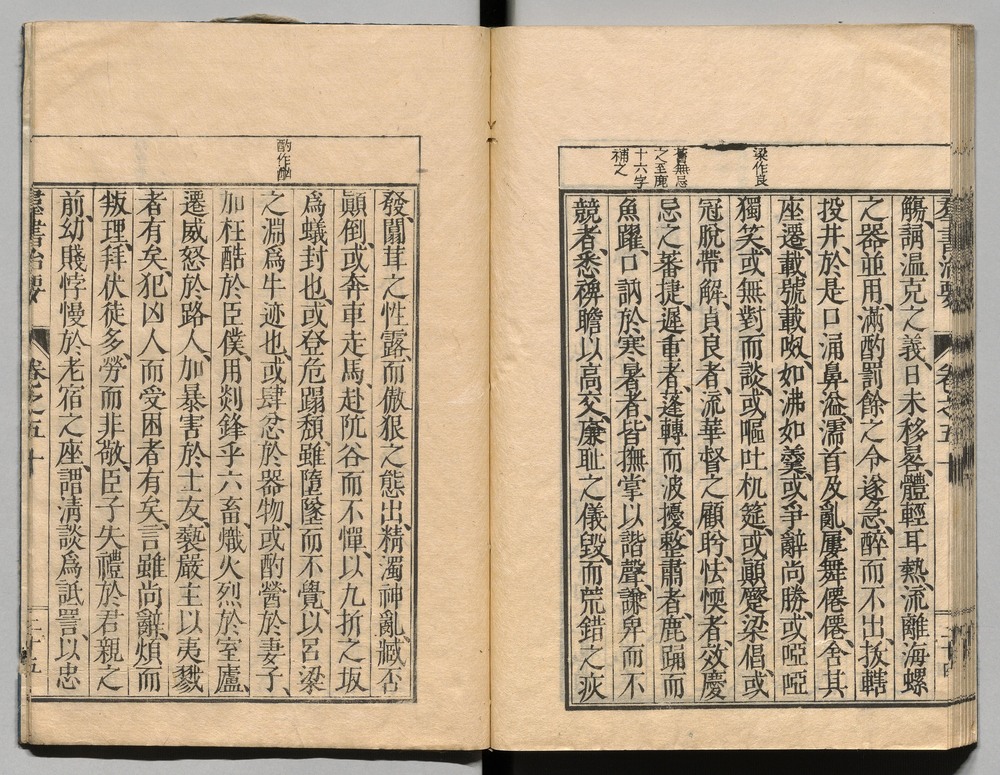 羣書治要 卷之五十 二十四
觴、謂温克之義、日未移晷、體輕耳熱、流離海螺
之器並用、滿酌罰餘之令遂急、醉而不出、拔轄
投井、於是口涌鼻溢、濡首及亂、屢舞僊僊、舍其
座遷、載號載呶、如沸如羹、或爭辭尚勝、或啞啞
獨笑、或無對而談、或嘔吐机筵、或顚蹷梁倡、或
冠脫帶解、貞良者、流華督之顧眄、怯愞者、效慶
忌之蕃捷、遲重者、蓬轉而波擾、整肅者、鹿踊而
魚躍、口訥於寒暑者、皆撫掌以諧聲、謙卑而不
競者、悉裨瞻以高交、廉耻之儀毀、而荒錯之疾
梁作良
舊無忌
之至鹿
十六字
補之
發、闒茸之性露、而傲狠之態出、精濁神亂、臧否
顚倒、或奔車走馬、赴阬谷而不憚、以九折之坂
爲蟻封也、或登危蹋頽、雖墮墜而不覺、以呂梁
之淵爲牛迹也、或肆忿於器物、或酌醟於妻子、
加枉酷於臣僕、用剡鋒乎六畜、熾火烈於室廬、
遷威怒於路人、加暴害於士友、褻嚴主以夷戮
者有矣、犯凶人而受困者有矣、言雖尚辭、煩而
叛理、拜伏徒多、勞而非敬、臣子失禮於君親之
前、幼賤悖慢於老宿之座、謂淸談爲詆詈、以忠
羣書治要 卷之五十 二十五
酌作酗